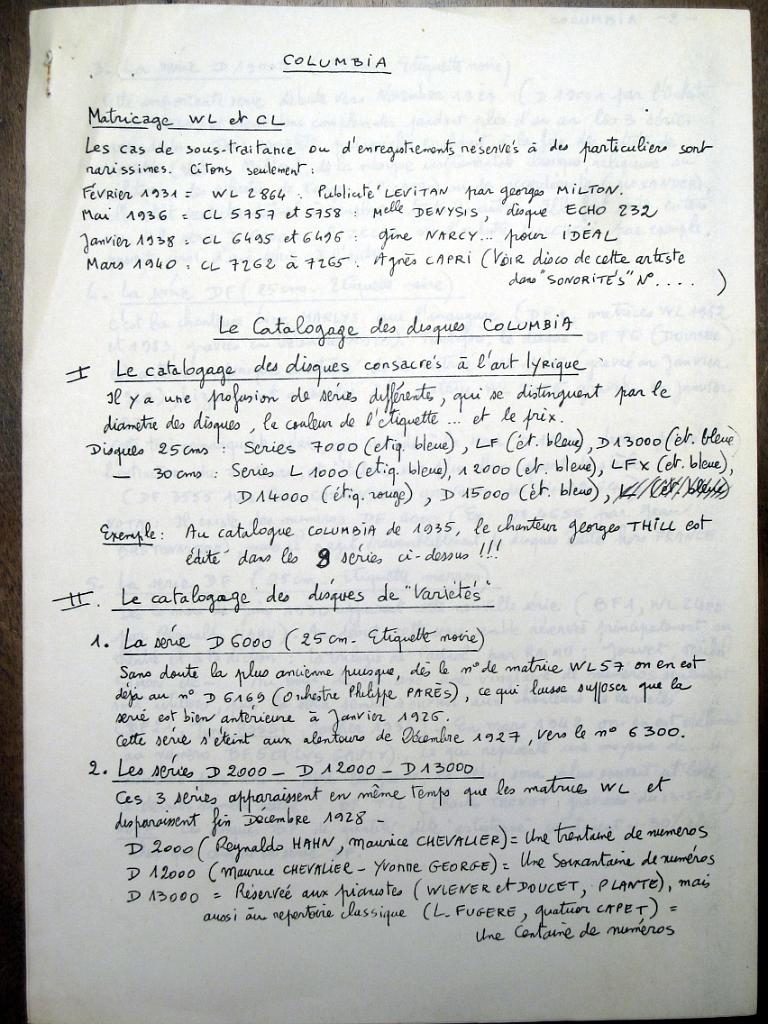 COLUMBIA
Matricage WL et CL
Les cas de sous-traitance ou d'enregistrements réservés à des particuliers sont
rarissimes. Citons seulement :
Février 1931 = WL 2864 . Publicité LEVITAN par georges MILTON.
Mai 1936 = CL 5757 et 5758 : Melle DENYSIS, disque ECHO 232
Janvier 1938 = CL 6495 et 6496 : gine NARCY... pour IDÉAL
Mars 1940 : CL 7262 à 7265 . Agnès CAPRI (VOIR disco de cette artiste
dans "SONORITÉS" N° .... )
Le Catalogage des disques COLUMBIA
I Le catalogage des disques consacrés à l'art lyrique
Il y a une profusion de séries différentes, qui se distinguent par le
diamètre des disques, la couleur de l'étiquette ... et le prix.
Disques 25cms : Séries 7000 (etiq. bleue), LF (ét. bleue), D13000 (ét. bleue
— 30cms : Séries L 1000 (etiq. bleue), 12000 (et. bleue), LFX (et. bleue),
D14000 (étiq. rouge) , D 15000 (ét. bleue),
Exemple : Au catalogue COLUMBIA de 1935, le chanteur georges THILL est
édité dans les 8 séries ci-dessus !!!
II. Le catalogage des disques de "Variétés"
1. La série D6000 (25cm - Etiquette noire)
Sans doute la plus ancienne puisque, dès le n° de matrice WL57 on en est
déjà au n° D6169 (Orchestre Philippe PARÈS), ce qui laisse supposer que la
série est bien antérieure à Janvier 1926.
Cette série s'éteint aux alentours de Décembre 1927, vers le n° 6300.
2. Les séries D2000 — D12000 — D13000
Ces 3 séries apparaissent en même temps que les matrices WL et
disparaissent fin Décembre 1928 -
D 2000 (Reynaldo HAHN, Maurice CHEVALIER) = Une trentaine de numéros
D 12000 (Maurice CHEVALIER - Yvonne GEORGE) = Une Soixantaine de numéros
D 13000 = Réservée aux pianistes (WIENER et DOUCET, PLANTE), mais
aussi au repertoire classique (L. FUGERE, quatuor CAPET) =
Une Centaine de numéros